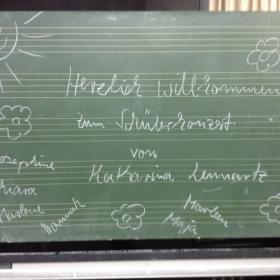 Herzlich willkommen
zum Schülerkonzert
von
Katharina Lennartz
Josephine
Chiara
Marlene
Hannah
Marleen
Maja